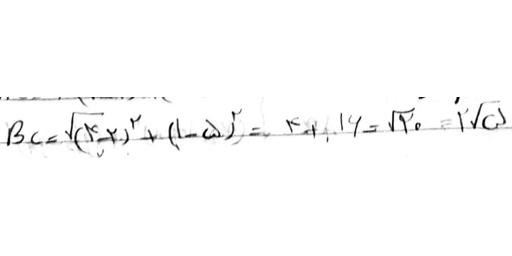 BC = √(۴-۲)^۲ + (۱-۵)^۲ = ۴+۱۶ = √۲۰ = ۲√۵